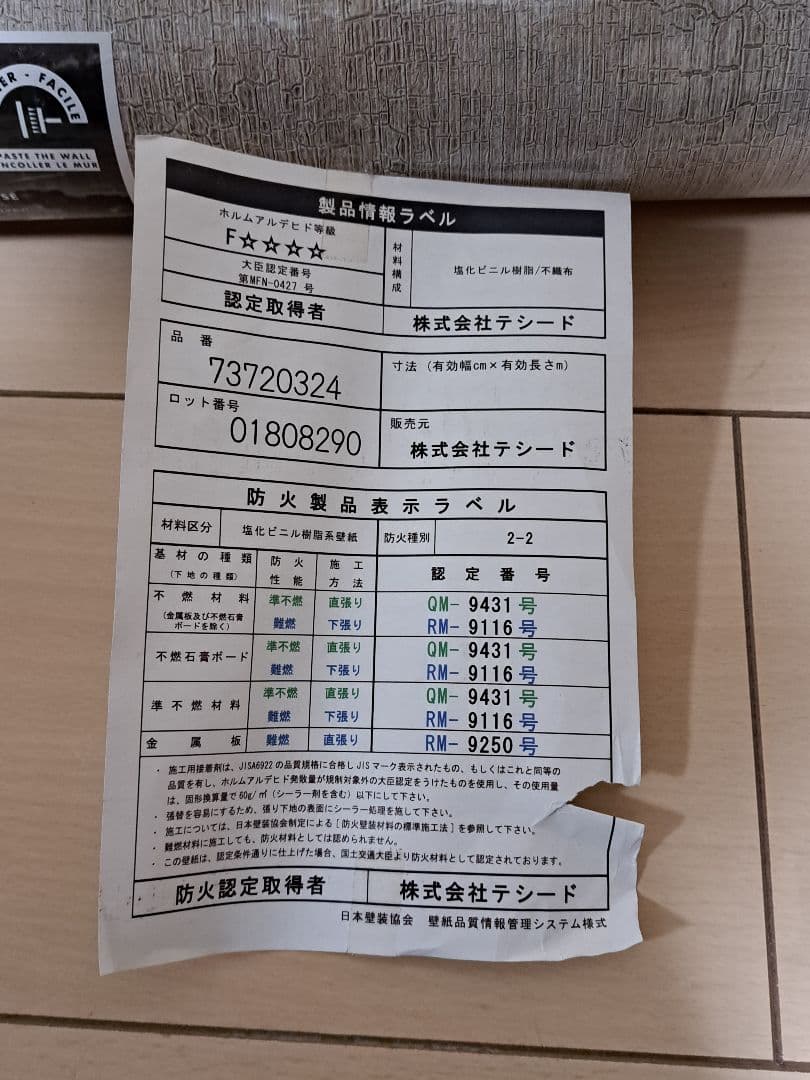 ER - FACILE
PASTE THE WALL
ENCOLLER LE MUR
製品情報ラベル
ホルムアルデヒド等級
F☆☆☆☆
大臣認定番号
第MFN-0427 号
材料構成
塩化ビニル樹脂/不織布
認定取得者
株式会社テシード
品番
73720324
寸法 (有効幅cm×有効長さm)
ロット番号
01808290
販売元
株式会社テシード
防火製品表示ラベル
材料区分 塩化ビニル樹脂系壁紙 防火種別 2-2
基材の種類 (下地の種類) 防火性能 施工方法 認定番号
不燃材料 (金属板及び不燃石膏ボードを除く) 準不燃 直張り QM- 9431 号
難燃 下張り RM- 9116 号
不燃石膏ボード 準不燃 直張り QM- 9431 号
難燃 下張り RM- 9116 号
準不燃材料 準不燃 直張り QM- 9431 号
難燃 下張り RM- 9116 号
金属板 難燃 直張り RM- 9250 号
・施工用接着剤は、JISA6922の品質規格に合格しJISマーク表示されたもの、もしくはこれと同等の
品質を有し、ホルムアルデヒド発散量が規制対象外の大臣認定をうけたものを使用し、その使用量
は、固形換算量で60g/㎡(シーラー剤を含む)以下にして下さい。
・張替を容易にするため、張り下地の表面にシーラー処理を施して下さい。
・施工については、日本壁装協会制定による[防火壁装材料の標準施工法]を参照して下さい。
・難燃材料に施工しても、防火材料としては認められません。
・この壁紙は、認定条件通りに仕上げた場合、国土交通大臣より防火材料として認定されております。
防火認定取得者 株式会社テシード
日本壁装協会 壁紙品質情報管理システム様式